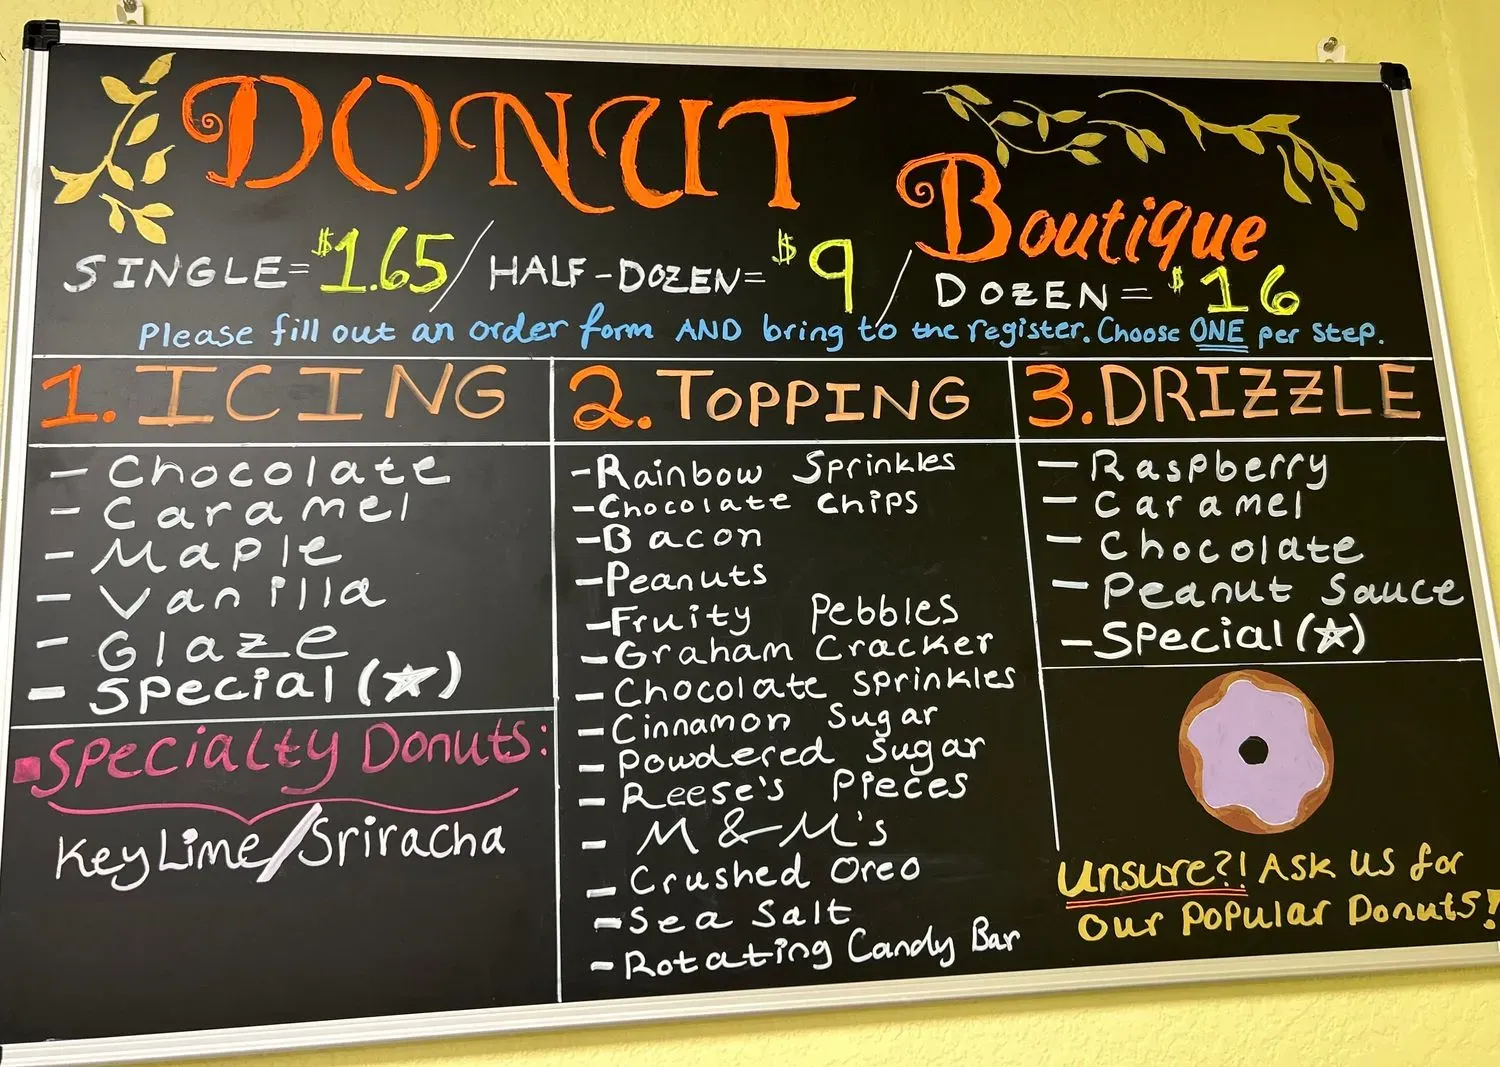 DONUT
Boutique
SINGLE = $1.65 / HALF-DOZEN = $9 / DOZEN = $16
Please fill out an order form AND bring to the register. Choose ONE per step.
1. ICING
- Chocolate
- Caramel
- Maple
- Vanilla
- Glaze
- Special (☆)
Specialty Donuts:
Key Lime/Sriracha
2. TOPPING
- Rainbow Sprinkles
- Chocolate Chips
- Bacon
- Peanuts
- Fruity Pebbles
- Graham Cracker
- Chocolate Sprinkles
- Cinnamon Sugar
- Powdered Sugar
- Reese's Pieces
- M&M's
- Crushed Oreo
- Sea Salt
- Rotating Candy Bar
3. DRIZZLE
- Raspberry
- Caramel
- Chocolate
- Peanut Sauce
- Special (☆)
Unsure?! Ask us for
our popular Donuts!